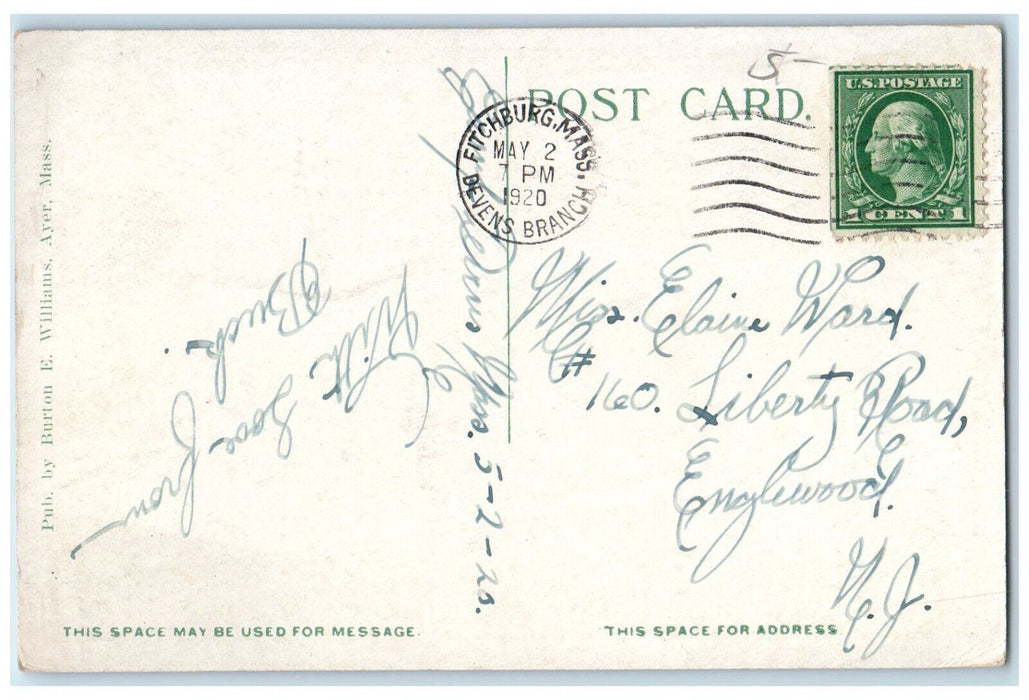 POST CARD.
5-
U.S. POSTAGE
1 CENT 1
FITCHBURG, MASS.
MAY 2
7 PM
1920
DEVENS BRANCH
Pub. by Burton E. Williams, Ayer, Mass.
Camp Devens Mass. 5-2-20.
With
Love from
Buck.
Miss. Elaine Ward.
# 160. Liberty Road,
Englewood.
N.J.
THIS SPACE MAY BE USED FOR MESSAGE.
THIS SPACE FOR ADDRESS